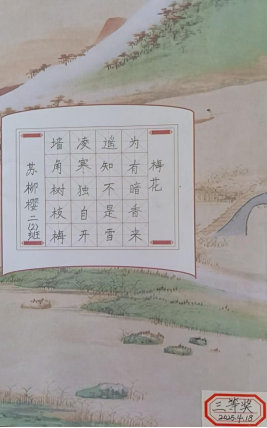 梅花
墙角树枝梅
凌寒独自开
遥知不是雪
为有暗香来
苏柳樱二(2)班
三等奖
2025.4.18